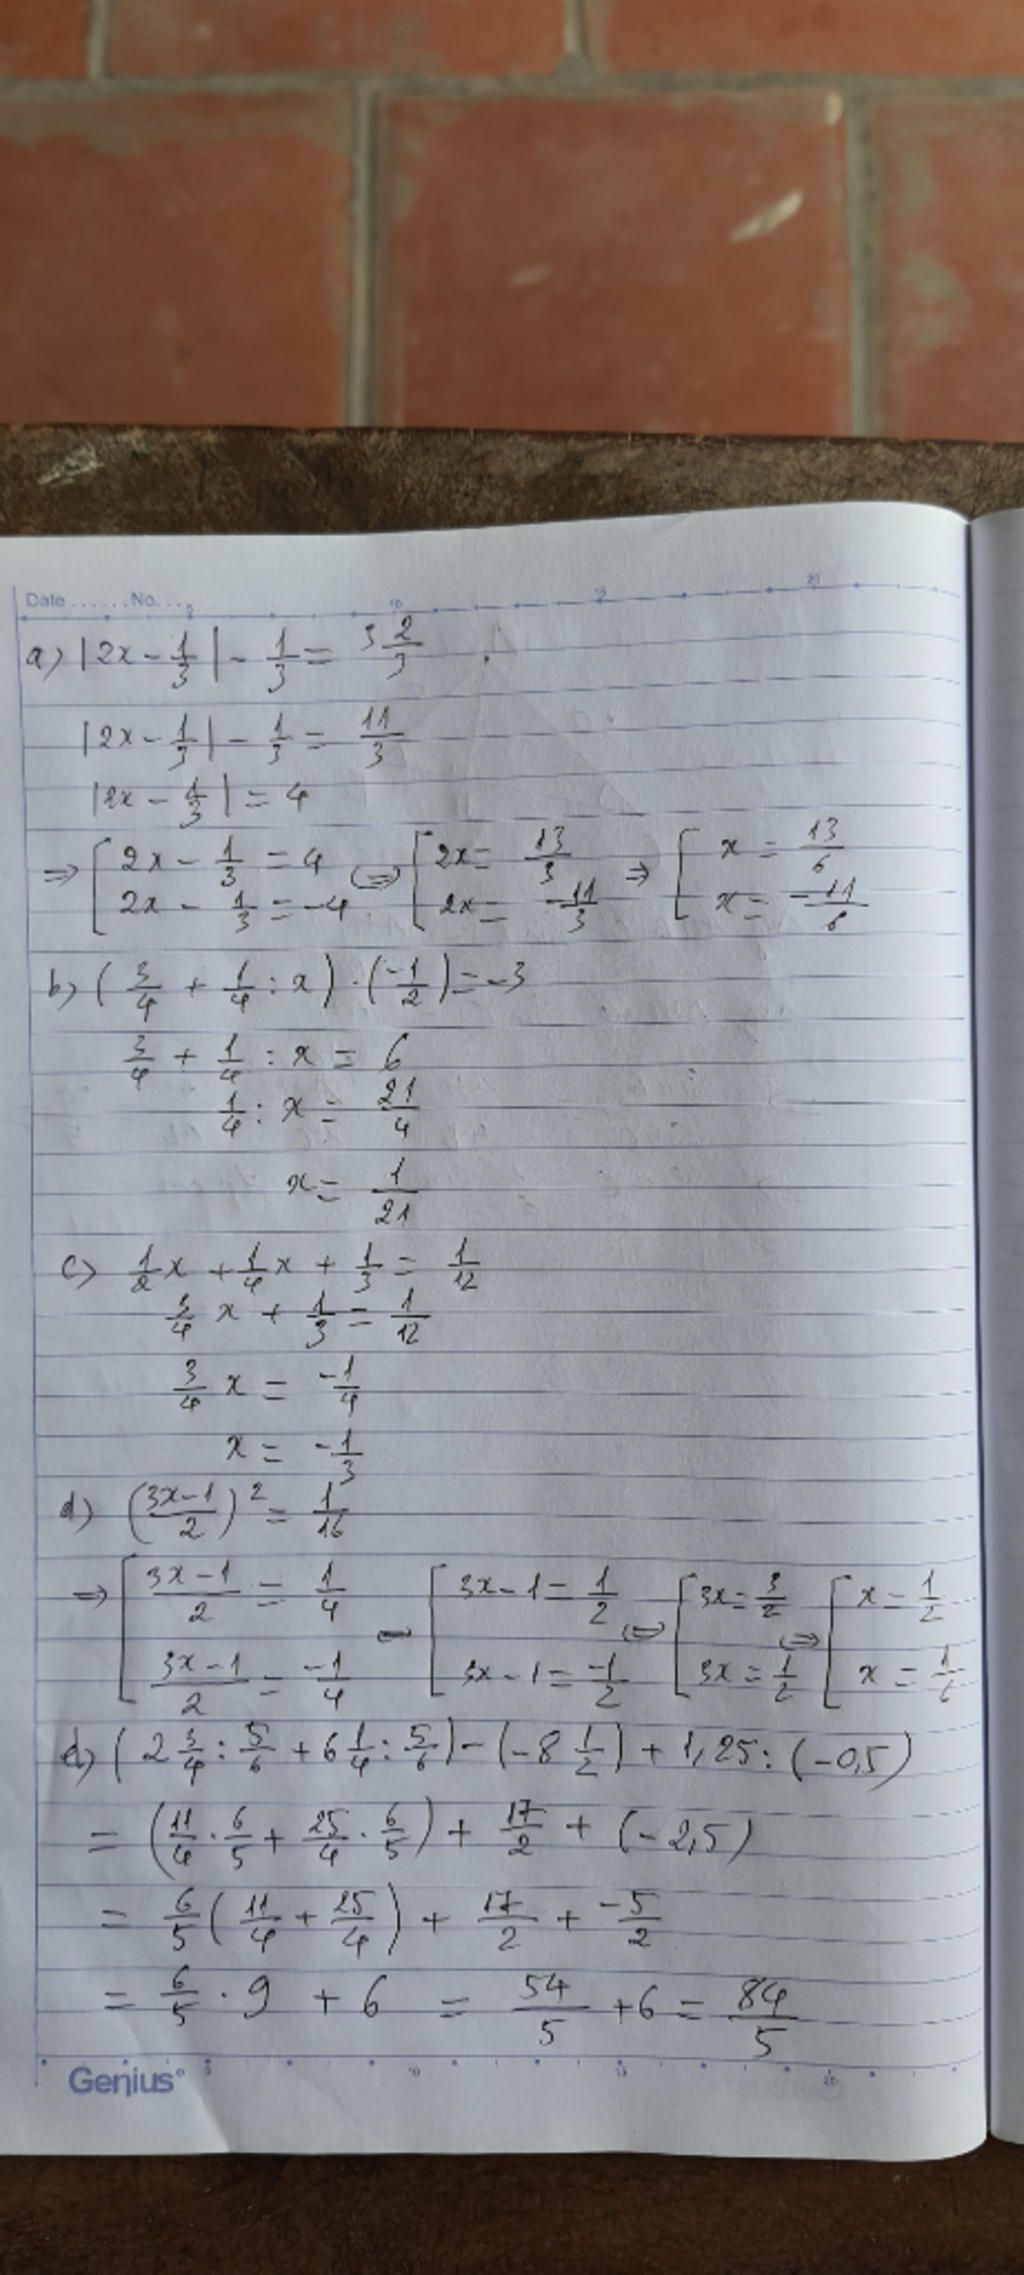 Date ...... No. ... 5 10 15 20
a) |2x - 1/3| - 1/3 = 3 2/3
|2x - 1/3| - 1/3 = 11/3
|2x - 1/3| = 4
=> [ 2x - 1/3 = 4 <=> [ 2x = 13/3 => [ x = 13/6
2x - 1/3 = -4 2x = -11/3 x = -11/6
b) (3/4 + 1/4 : x) . (-1/2) = -3
3/4 + 1/4 : x = 6
1/4 : x = 21/4
x = 1/21
c) 1/2 x + 1/4 x + 1/3 = 1/12
3/4 x + 1/3 = 1/12
3/4 x = -1/4
x = -1/3
d) ((3x-1)/2)² = 1/16
=> [ (3x-1)/2 = 1/4 [ 3x-1 = 1/2 <=> [ 3x = 3/2 <=> [ x = 1/2
(3x-1)/2 = -1/4 3x-1 = -1/2 3x = 1/2 x = 1/6
đ) (2 3/4 : 5/6 + 6 1/4 : 5/6) - (-8 1/2) + 1,25 : (-0,5)
= (11/4 . 6/5 + 25/4 . 6/5) + 17/2 + (-2,5)
= 6/5 (11/4 + 25/4) + 17/2 + -5/2
= 6/5 . 9 + 6 = 54/5 + 6 = 84/5
Genius 5 10 15 20